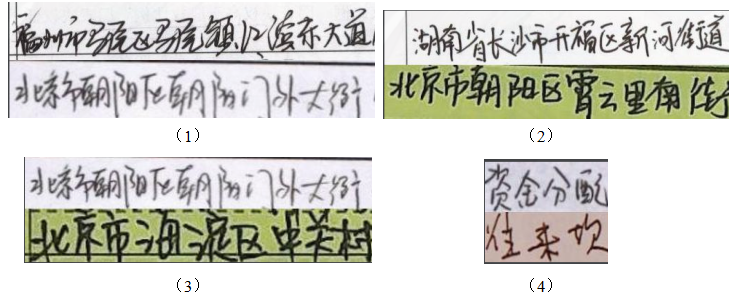 福州市马尾区马尾镇江滨东大道
北京市朝阳区朝阳门外大街
(1)
湖南省长沙市开福区新河街道
北京市朝阳区霄云里南街
(2)
北京市朝阳区朝阳门外大街
北京市海淀区中关村
(3)
资金分配
往来款
(4)